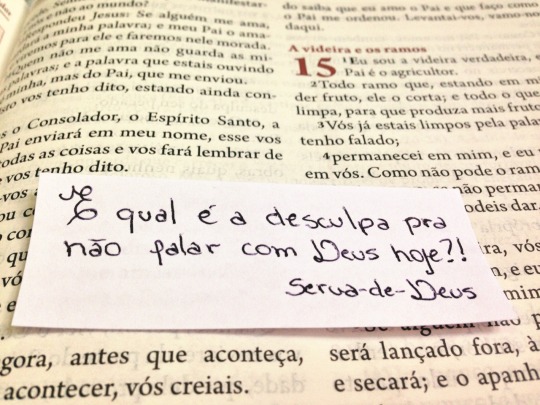 sem não ao mundo?
pondeu Jesus: Se alguém me ama
ardará a minha palavra; e meu Pai o ama-
remos para ele e faremos nele morada.
em não me ama não guarda as mi-
palavras; e a palavra que estais ouvindo
minha, mas do Pai, que me enviou.
vos tenho dito, estando ainda con-
s o Consolador, o Espírito Santo, a
Pai enviará em meu nome, esse vos
todas as coisas e vos fará lembrar de
vos tenho dito.
gora, antes que aconteça,
acontecer, vós creiais.
do saiba que eu amo o Pai e que faço como
o Pai me ordenou. Levantai-vos, vamo-nos
daqui.
A videira e os ramos
15 ¹Eu sou a videira verdadeira, e
Pai é o agricultor.
²Todo ramo que, estando em m
der fruto, ele o corta; e todo o que
limpa, para que produza mais fruto
³Vós já estais limpos pela pala
tenho falado;
⁴permanecei em mim, e eu
em vós. Como não pode o ram
não perman
odeis dar.
ira, vós
m, e eu
mim
será lançado fora, à
e secará; e o apanh
E qual é a desculpa pra
não falar com Deus hoje?!
Serva-de-Deus